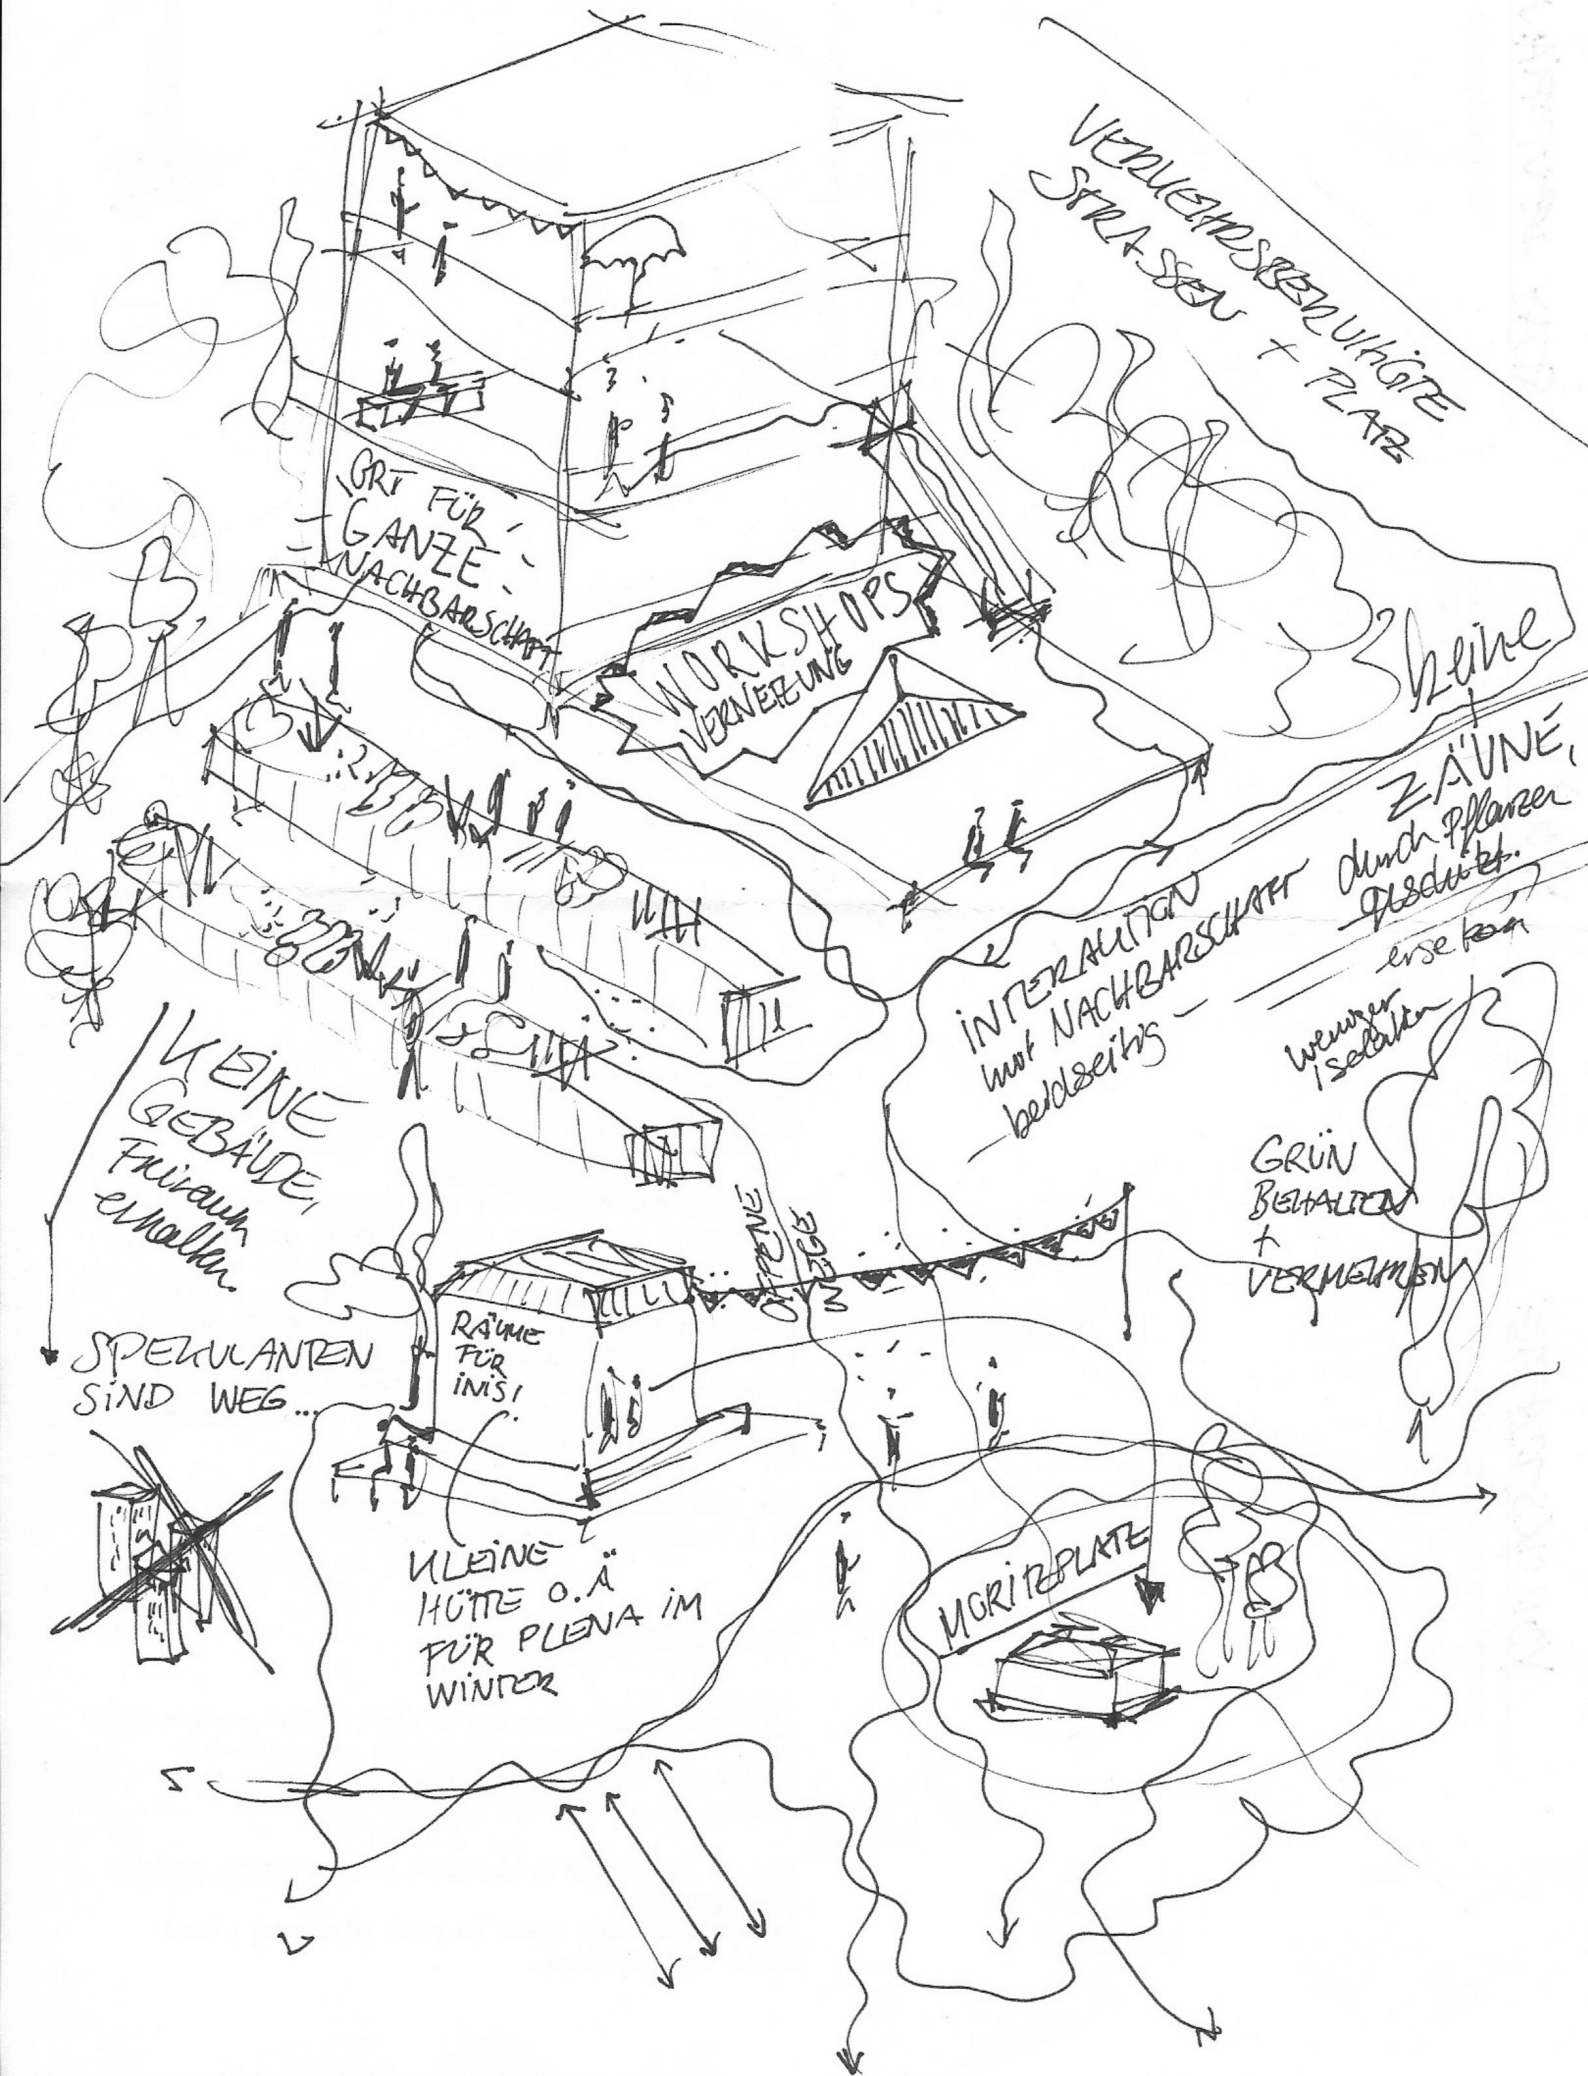 VERKEHRSBERUHIGTE
STRASSEN + PLATZ
ORT FÜR
GANZE
NACHBARSCHAFT
WORKSHOPS
VERNETZUNG
keine
ZÄUNE,
durch Pflanzen
geschützt.
ersetzen
INTERAKTION
mit NACHBARSCHAFT
beidseitig
weniger
isolation
KEINE
GEBÄUDE,
Freiraum
erhalten.
GRÜN
BEHALTEN
+
VERMEHREN
OFFENE
WEGE
RÄUME
FÜR
INIS!
SPEKULANTEN
SIND WEG...
KLEINE
HÜTTE O.Ä
FÜR PLENA IM
WINTER
MORITZPLATZ